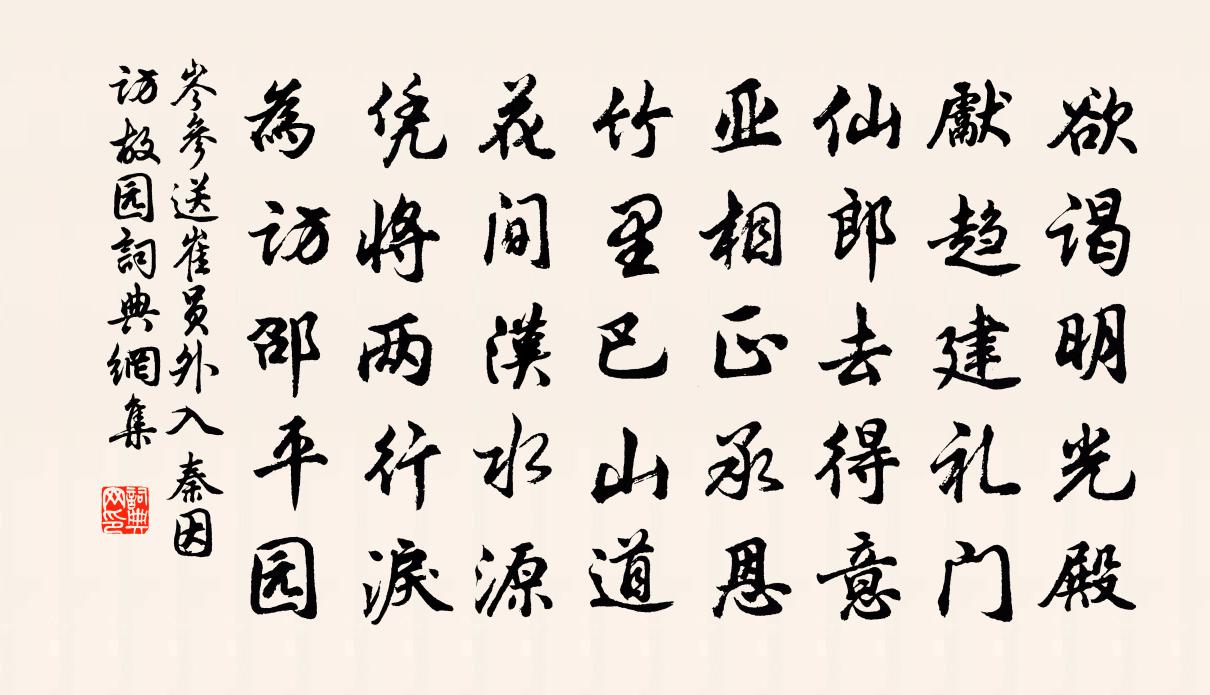 欲谒明光殿
獻趋建礼门
仙郎去得意
亚相正承恩
竹里巴山道
花间漢水源
凭將两行淚
為访邵平园
岑參送崔员外入秦因
访故园詞典網集
詞典
网印